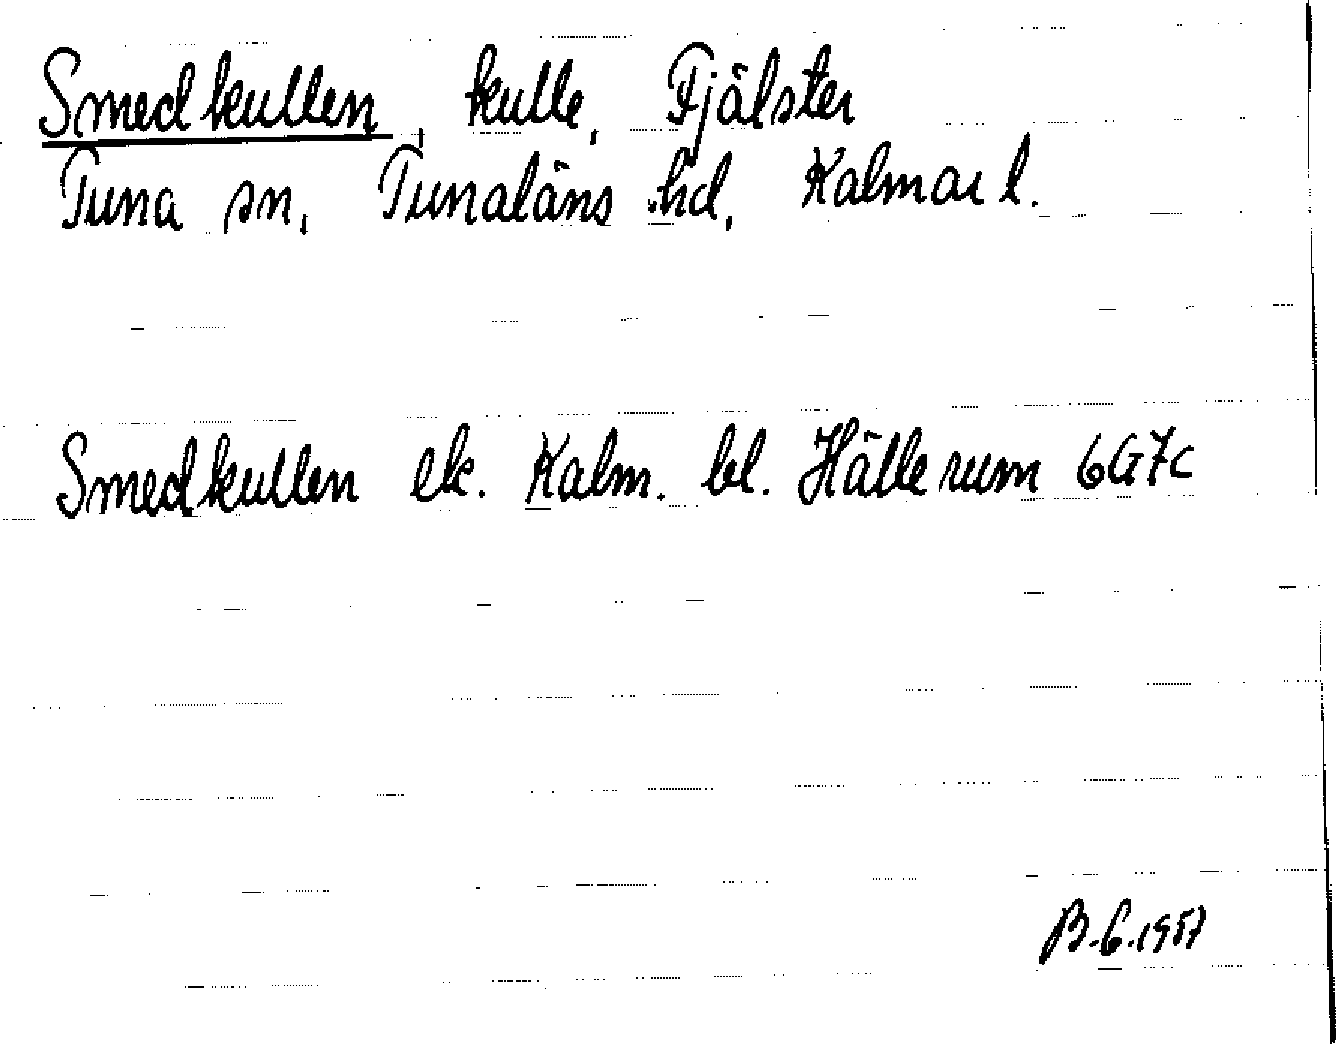 Smedkullen, kulle, Fjälster
Tuna sn, Tunaläns hd, Kalmar l.
Smedkullen ek. Kalm. bl. Hällerum 6G7c
B.G. 1957